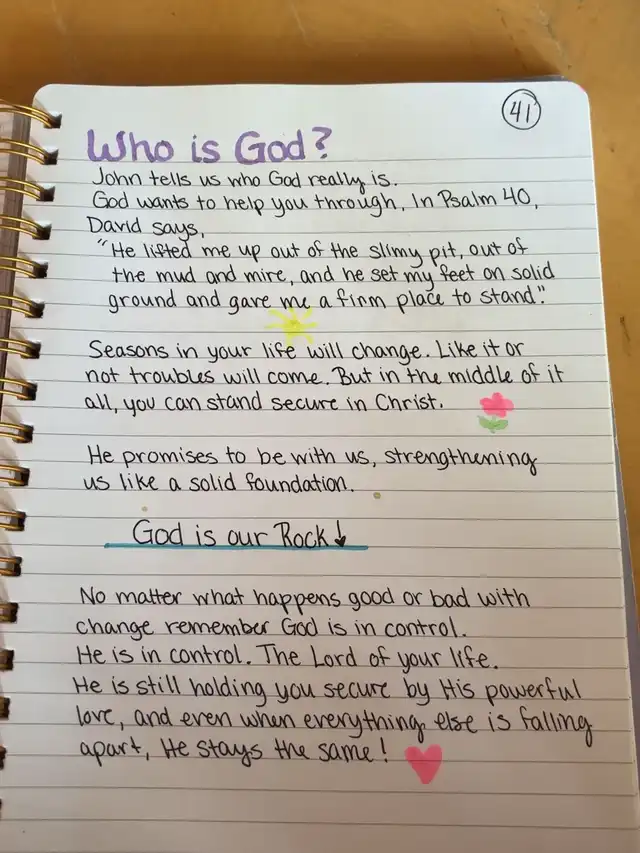 41
Who is God?
John tells us who God really is.
God wants to help you through. In Psalm 40,
David says,
"He lifted me up out of the slimy pit, out of
the mud and mire, and he set my feet on solid
ground and gave me a firm place to stand".
Seasons in your life will change. Like it or
not troubles will come. But in the middle of it
all, you can stand secure in Christ.
He promises to be with us, strengthening
us like a solid foundation.
God is our Rock↓
No matter what happens good or bad with
change remember God is in control.
He is in control. The Lord of your life.
He is still holding you secure by His powerful
love, and even when everything else is falling
apart, He stays the same!